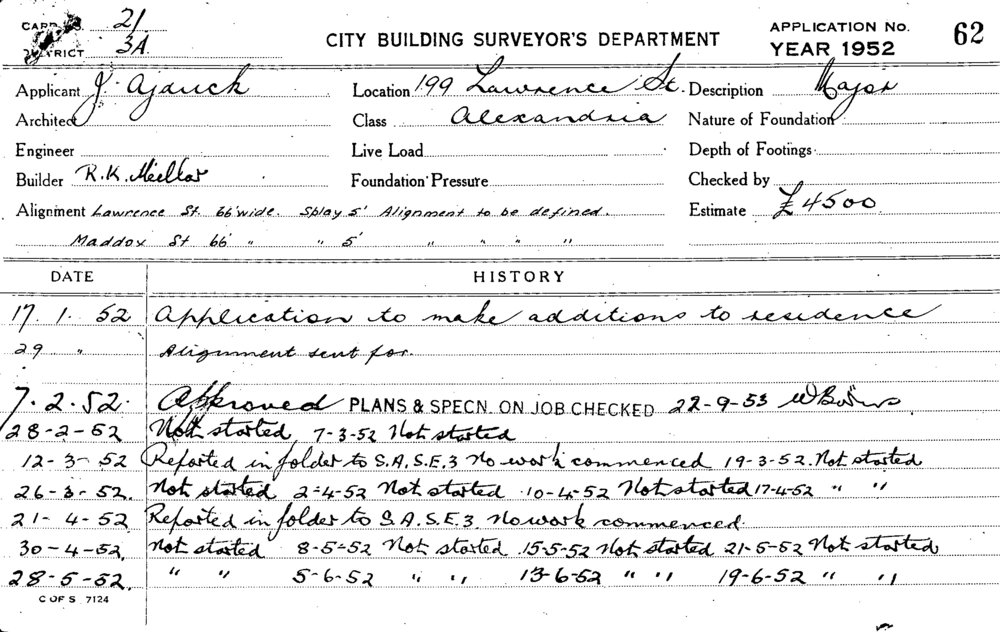 CARD No. 21
DISTRICT 3A.
CITY BUILDING SURVEYOR'S DEPARTMENT
APPLICATION No. 62
YEAR 1952
Applicant J. Ajauck Location 199 Lawrence St. Description Major
Architect Class Alexandria Nature of Foundation
Engineer Live Load Depth of Footings
Builder R.K. Foundation Pressure Checked by
Alignment Lawrence St. 66' wide. Splay 5' Alignment to be defined. Estimate £4500
Maddox St 66' " " 5' " " " "
DATE HISTORY
17. 1. 52 Application to make additions to residence
29 " Alignment sent for.
7. 2. 52. Approved PLANS & SPECN. ON JOB CHECKED 22-9-53
28-2-52 Not started 7-3-52 Not started
12-3-52 Reported in folder to S.A.S.E.3 No work commenced 19-3-52. Not started
26-3-52. Not started 2-4-52 Not started 10-4-52 Not started 17-4-52 " "
21-4-52 Reported in folder to S.A.S.E.3. No work commenced.
30-4-52, Not started 8-5-52 Not started 15-5-52 Not started 21-5-52 Not started
28-5-52. " " 5-6-52 " " 13-6-52 " " 19-6-52 " "
C OF S 7124